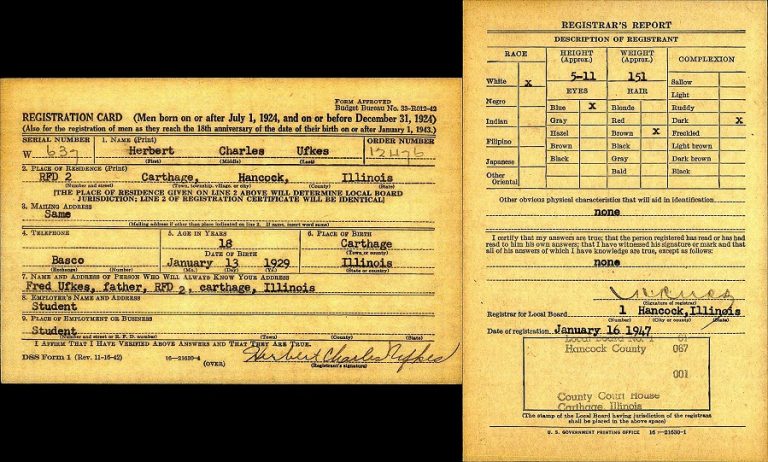 FORM APPROVED
Budget Bureau No. 33-R012-42
REGISTRATION CARD (Men born on or after July 1, 1924, and on or before December 31, 1924)
(Also for the registration of men as they reach the 18th anniversary of the date of their birth on or after January 1, 1943.)
SERIAL NUMBER 1. NAME (Print) ORDER NUMBER
W 637 Herbert Charles Ufkes 12476
(First) (Middle) (Last)
2. PLACE OF RESIDENCE (Print)
RFD 2 Carthage, Hancock, Illinois
(Number and street) (Town, township, village, or city) (County) (State)
[THE PLACE OF RESIDENCE GIVEN ON LINE 2 ABOVE WILL DETERMINE LOCAL BOARD
JURISDICTION; LINE 2 OF REGISTRATION CERTIFICATE WILL BE IDENTICAL]
3. MAILING ADDRESS
Same
(Mailing address if other than place indicated on line 2. If same, insert word same)
4. TELEPHONE 5. AGE IN YEARS 6. PLACE OF BIRTH
18 Carthage
DATE OF BIRTH (Town or county)
Basco January 13 1929 Illinois
(Exchange) (Number) (Mo.) (Day) (Yr.) (State or country)
7. NAME AND ADDRESS OF PERSON WHO WILL ALWAYS KNOW YOUR ADDRESS
Fred Ufkes, father, RFD 2, carthage, Illinois
8. EMPLOYER'S NAME AND ADDRESS
Student
9. PLACE OF EMPLOYMENT OR BUSINESS
Student
(Number and street or R. F. D. number) (Town) (County) (State)
I AFFIRM THAT I HAVE VERIFIED ABOVE ANSWERS AND THAT THEY ARE TRUE.
DSS Form 1 (Rev. 11-16-42) 16—21630-4 Herbert Charles Ufkes
(OVER) (Registrant's signature)
REGISTRAR'S REPORT
DESCRIPTION OF REGISTRANT
RACE HEIGHT (Approx.) WEIGHT (Approx.) COMPLEXION
5-11 151
White X Sallow
EYES HAIR Light
Negro Blue X Blonde Ruddy
Indian Gray Red Dark X
Hazel Brown X Freckled
Filipino Brown Black Light brown
Japanese Black Gray Dark brown
Other Oriental Bald Black
Other obvious physical characteristics that will aid in identification
none
I certify that my answers are true; that the person registered has read or has had
read to him his own answers; that I have witnessed his signature or mark and that
all of his answers of which I have knowledge are true, except as follows:
none
(Signature of registrar)
Registrar for Local Board 1 Hancock, Illinois
(Number) (City or county) (State)
Date of registration January 16 1947
Local Board No. 1 01
Hancock County 067
001
County Court House
Carthage, Illinois
(The stamp of the Local Board having jurisdiction of the registrant
shall be placed in the above space)
U. S. GOVERNMENT PRINTING OFFICE 16—21630-1